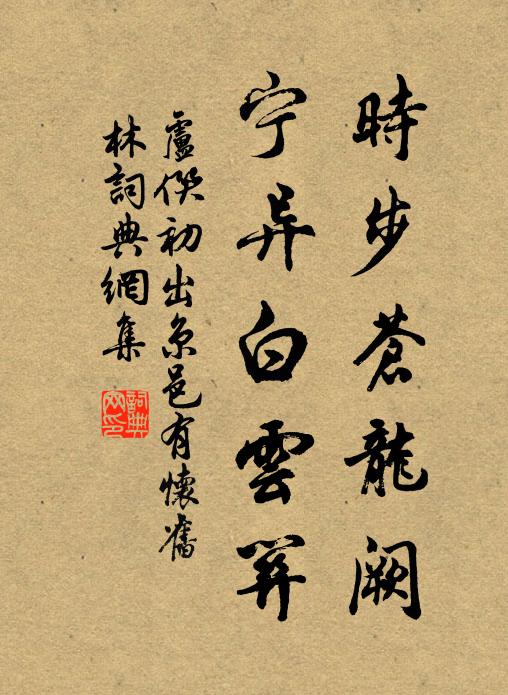 時步蒼龍闕
宁异白雲關
盧僎初出京邑有懷舊
林詞典網集
詞典
网印